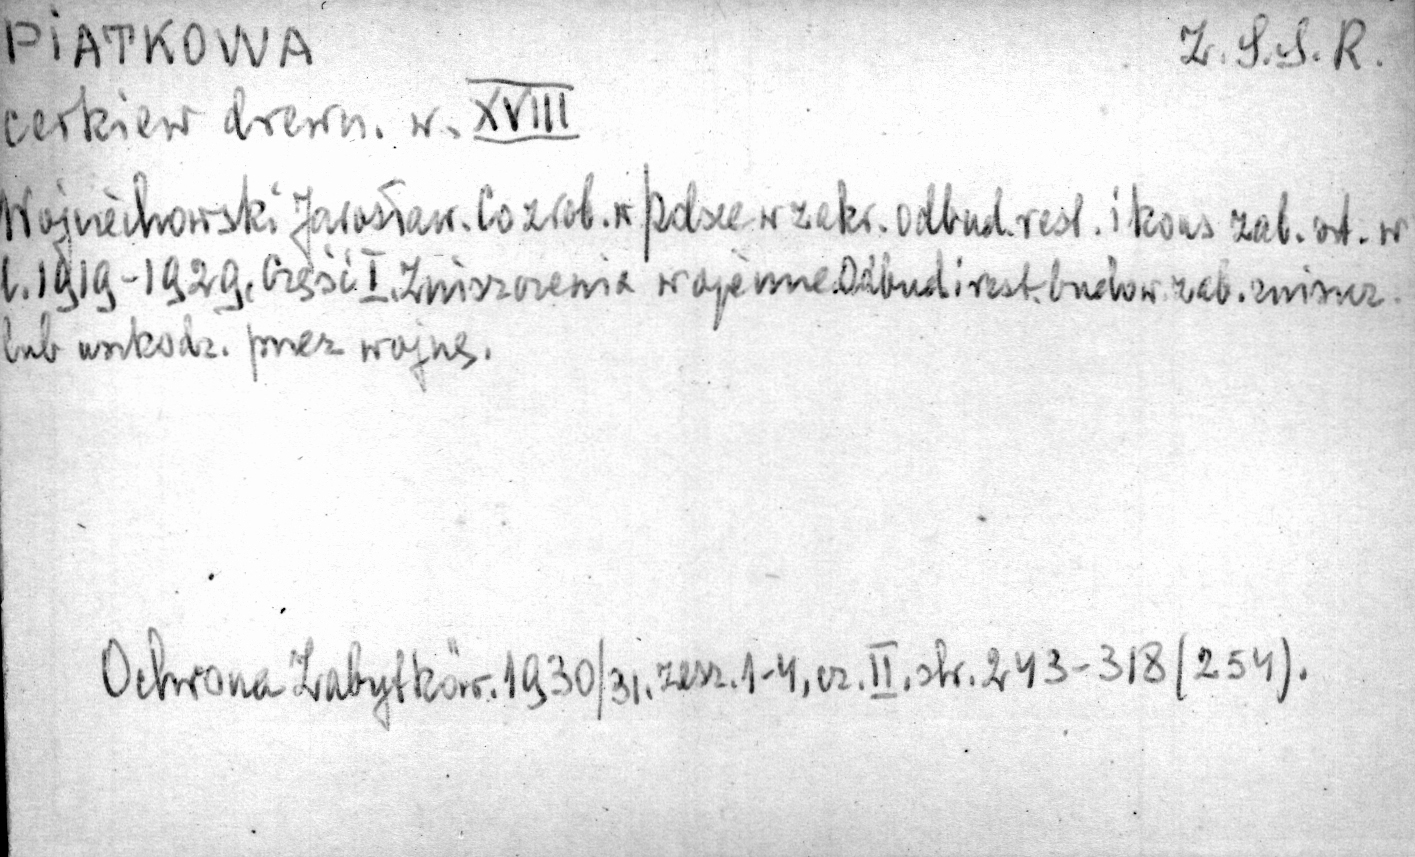 PIATKOWA Z.S.S.R.
cerkiew drewn. w. XVIII
Wojciechowski Jarosław. Co zrob. w Polsce w zakr. odbud. rest. i kons zab. szt. w
l. 1919-1929. Część I. Zniszczenia wojenne. Odbud. i rest. budow. zab. zniszcz.
lub uszkodz. przez wojnę.
Ochrona Zabytków. 1930/31. zesz. 1-4, cz. II. str. 243-318 (254).